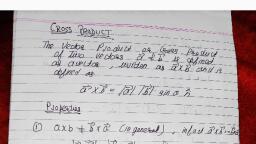 CROSS PRODUCT
The Vector Product or Cross Product
of two vectors a⃗ & b⃗ is defined
as a vector, written as a⃗×b⃗ and is
defined as
a⃗×b⃗ = |a⃗| |b⃗| sin θ n̂
Properties
① a×b ≠ b⃗×a⃗ (in general), infact a⃗×b⃗ =